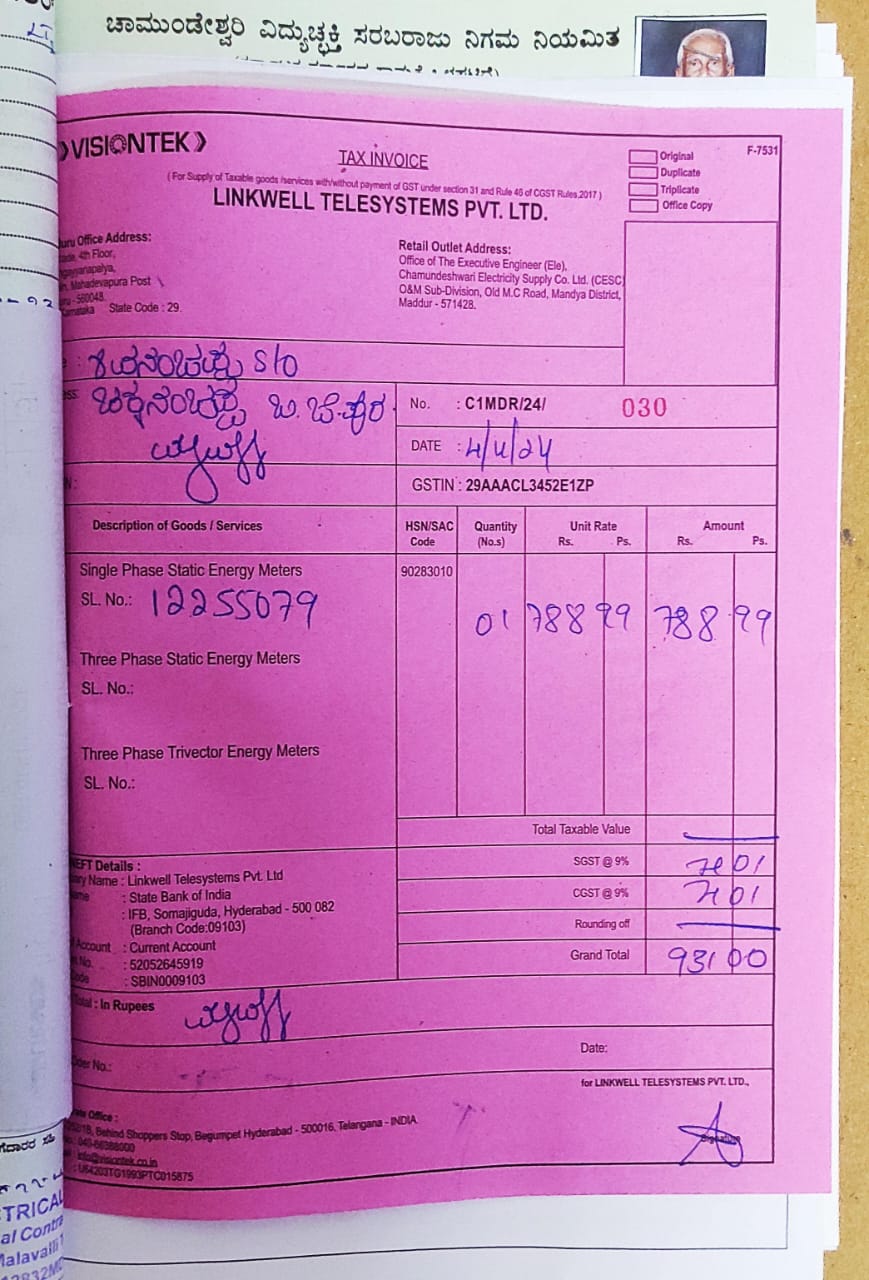 ಚಾಮುಂಡೇಶ್ವರಿ ವಿದ್ಯುಚ್ಛಕ್ತಿ ಸರಬರಾಜು ನಿಗಮ ನಿಯಮಿತ
VISIONTEK
TAX INVOICE
Original
F-7531
Duplicate
Triplicate
Office Copy
( For Supply of Taxable goods /services with/without payment of GST under section 31 and Rule 46 of CGST Rules,2017 )
LINKWELL TELESYSTEMS PVT. LTD.
Office Address:
4th Floor,
Mahadevapura Post
560048.
State Code : 29.
Retail Outlet Address:
Office of The Executive Engineer (Ele),
Chamundeshwari Electricity Supply Co. Ltd. (CESC)
O&M Sub-Division, Old M.C Road, Mandya District,
Maddur - 571428.
S/o
No. : C1MDR/24/ 030
DATE : 4/4/24
GSTIN : 29AAACL3452E1ZP
Description of Goods / Services
HSN/SAC Code
Quantity (No.s)
Unit Rate Rs. Ps.
Amount Rs. Ps.
Single Phase Static Energy Meters 90283010
SL. No.: 12255079 01 788 99 788 99
Three Phase Static Energy Meters
SL. No.:
Three Phase Trivector Energy Meters
SL. No.:
Total Taxable Value
SGST @ 9% 71 01
CGST @ 9% 71 01
Rounding off
Grand Total 931 00
NEFT Details :
Name : Linkwell Telesystems Pvt. Ltd
: State Bank of India
: IFB, Somajiguda, Hyderabad - 500 082
(Branch Code:09103)
Account : Current Account
No. : 52052645919
: SBIN0009103
Total : In Rupees
Order No.:
Date:
for LINKWELL TELESYSTEMS PVT. LTD.,
Office :
Behind Shoppers Stop, Begumpet Hyderabad - 500016, Telangana - INDIA
: 040-66388000
: info@visiontek.co.in
: U64203TG1993PTC015875